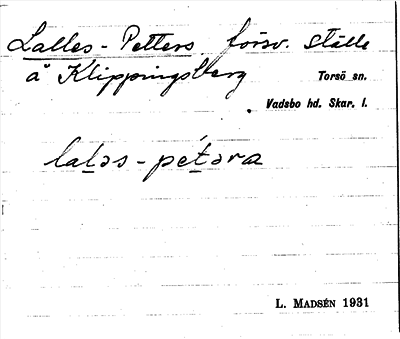 Lalles-Petters försv. ställe
å Klippingsberg
Torsö sn.
Vadsbo hd. Skar. l.
laləs-pétəra
L. MADSÉN 1931